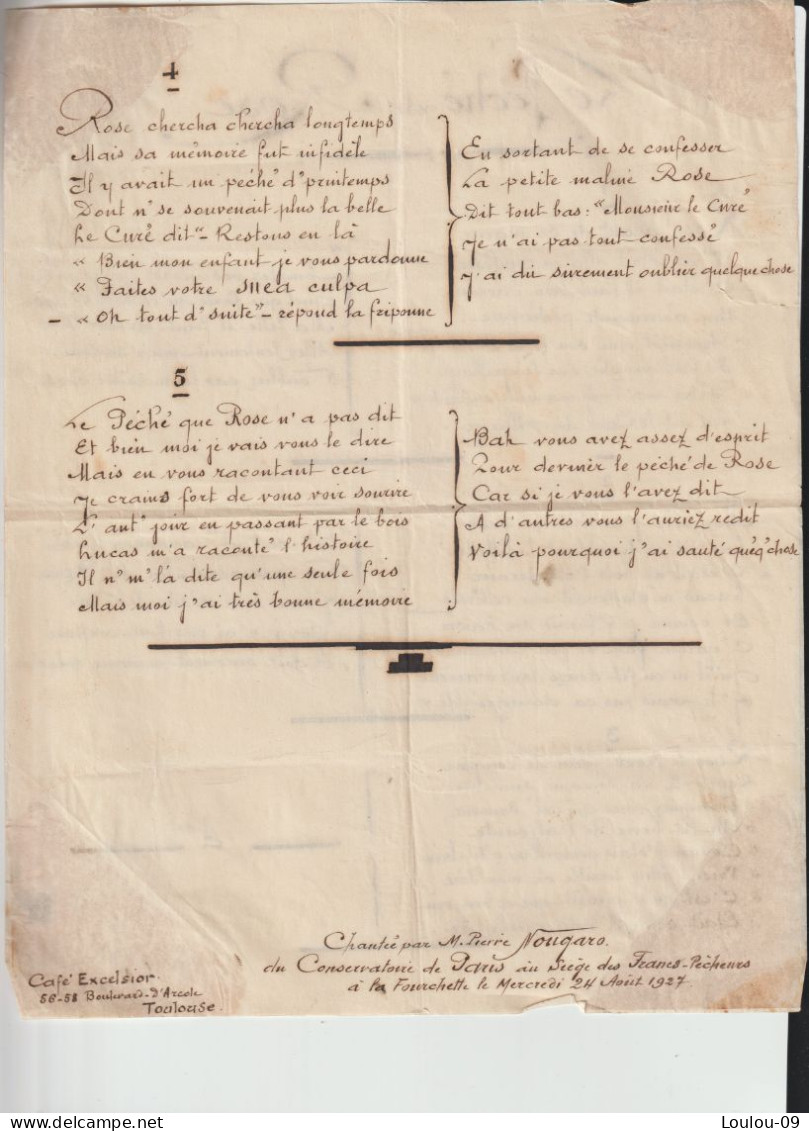 4
Rose chercha chercha longtemps
Mais sa mémoire fut infidèle
Il y avait un péché d'printemps
Dont n'se souvenait plus la belle
Le Curé dit "- Restons en là
" Bien mon enfant je vous pardonne
" Faites votre mea culpa
- " Oh tout d'suite" - répond la friponne
En sortant de se confesser
La petite maline Rose
Dit tout bas : "Monsieur le Curé
Je n'ai pas tout confessé
J'ai dû sûrement oublier quelque chose
5
Le Péché que Rose n'a pas dit
Et bien moi je vais vous le dire
Mais en vous racontant ceci
Je crains fort de vous voir sourire
L'aut' joir en passant par le bois
Lucas m'a raconté l'histoire
Il n'm'la dite qu'une seule fois
Mais moi j'ai très bonne mémoire
Bah vous avez assez d'esprit
Pour deviner le péché de Rose
Car si je vous l'avez dit
A d'autres vous l'auriez redit
Voilà pourquoi j'ai sauté quéq'chose
Chantée par M. Pierre Nougaro.
du Conservatoire de Paris au Siège des Francs-Pêcheurs
à la Fourchette le Mercredi 24 Août 1927.
Café Excelsior.
56-58 Boulevard-d'Arcole
Toulouse.
delcampe.net
Loulou-09